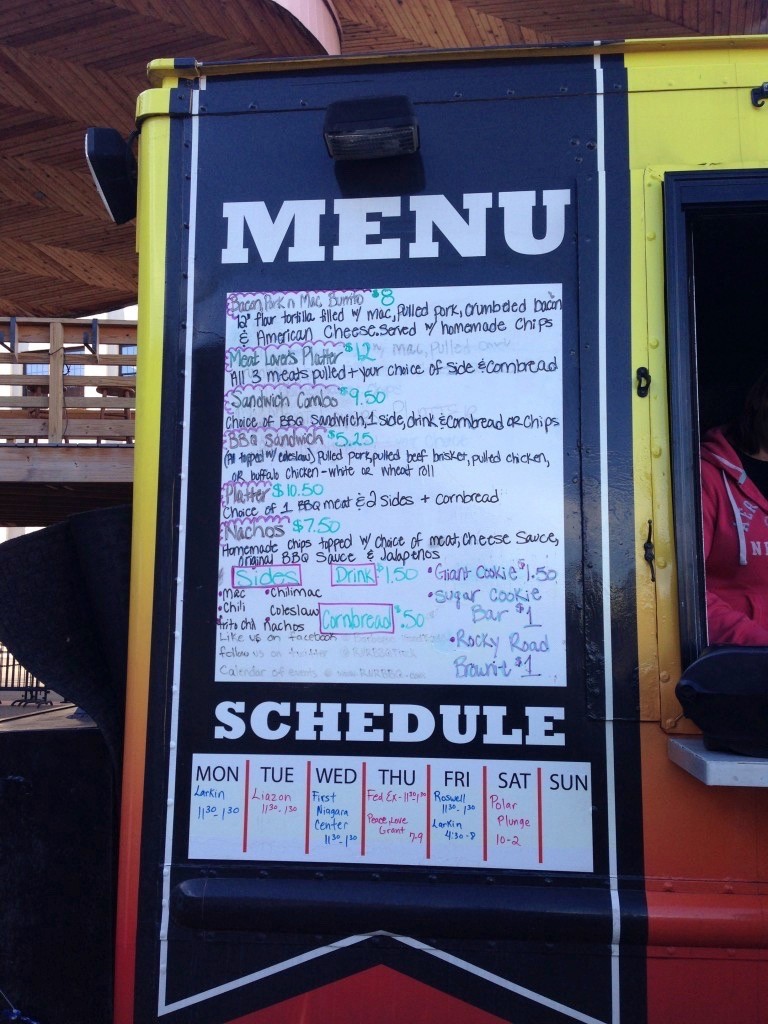 MENU
Bacon, Pork n Mac Burrito $8
12" flour tortilla filled w/ mac, Pulled pork, crumbeled bacon
& American Cheese. Served w/ homemade chips
Meat Lover's Platter $12
All 3 meats pulled + your choice of side & cornbread
Sandwich Combo $9.50
Choice of BBQ Sandwich, 1 side, drink & Cornbread OR Chips
BBQ Sandwich $5.25
(All topped w/ coleslaw) Pulled pork, pulled beef brisket, pulled chicken,
OR buffalo chicken - white or wheat roll
Platter $10.50
Choice of 1 BBQ meat & 2 sides + cornbread
Nachos $7.50
Homemade chips topped w/ choice of meat, Cheese Sauce,
original BBQ Sauce & Jalapenos
Sides
•Mac •Chilimac
•Chili Coleslaw
frito chili nachos
Drink $1.50
Cornbread $.50
•Giant Cookie $1.50
•Sugar Cookie
Bar $1
•Rocky Road
Brownie $1
Like us on facebook
follow us on twitter
Calendar of events @ www.
SCHEDULE
MON TUE WED THU FRI SAT SUN
Larkin
11:30-1:30
Liazon
11:30-1:30
First
Niagara
Center
11:30-1:30
Fed Ex - 11:30-1:30
Peace, Love
Grant 7-9
Roswell
11:30-1:30
Larkin
4:30-8
Polar
Plunge
10-2